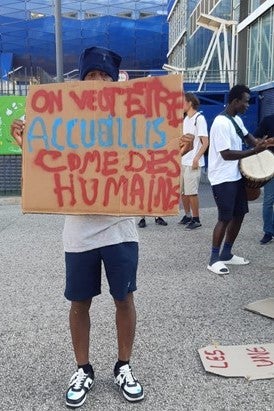 ON VEUT ETRE
ACCUEILLIS
COME DES
HUMAINS
LES
UNE